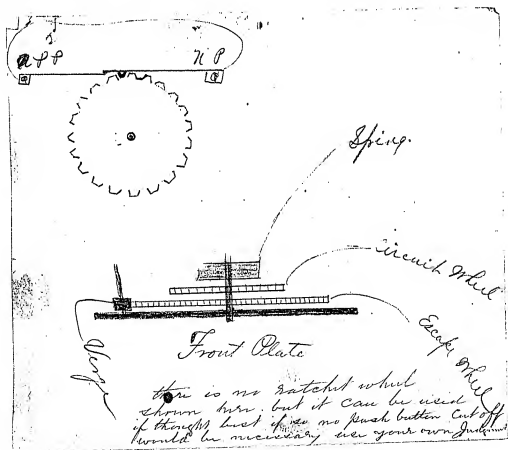 s
a P P
N P
Spring.
Circuit Wheel
Escape Wheel
Verge
Front Plate
there is no ratchet wheel
shown here. but it can be used
if thought best if so no push button cut off
would be necessary use your own Judgment